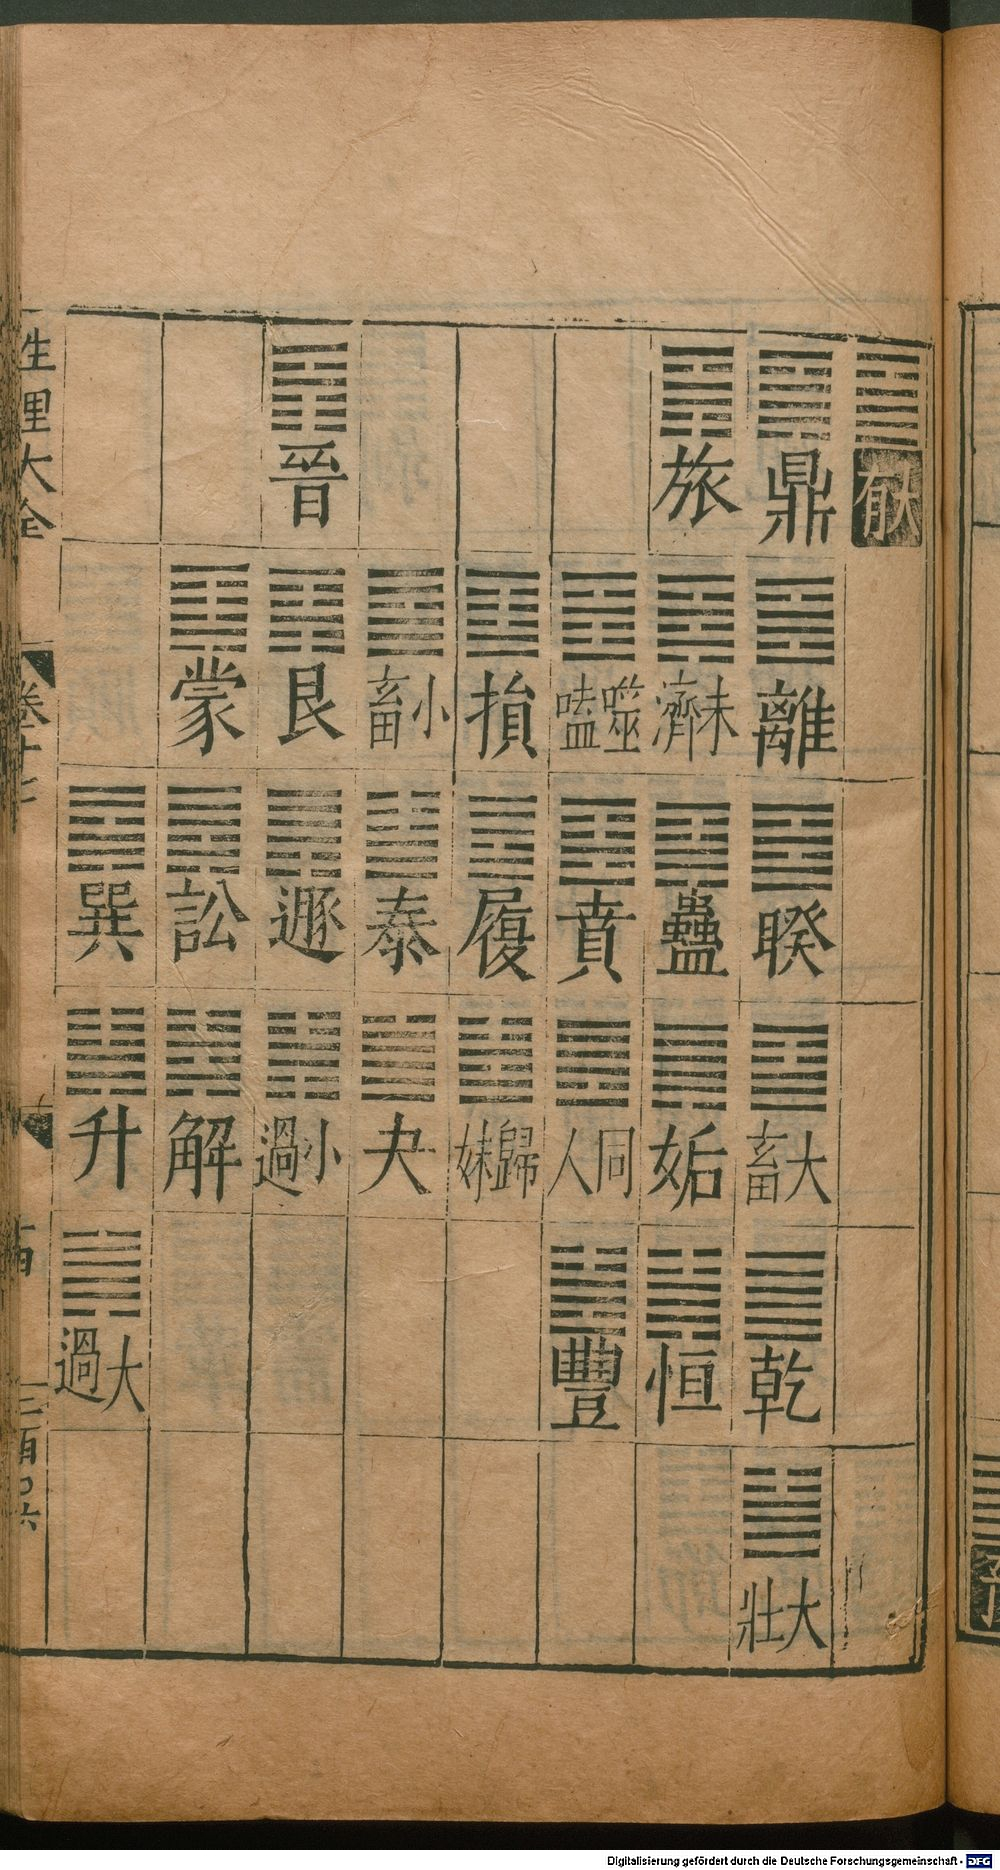 大有
鼎
離
睽
大畜
乾
大壯
旅
未濟
蠱
姤
恒
噬嗑
賁
同人
豐
損
履
歸妹
小畜
泰
夬
晉
艮
遯
小過
蒙
訟
解
巽
升
大過
性理大全
卷十七
Digitalisierung gefördert durch die Deutsche Forschungsgemeinschaft - DFG